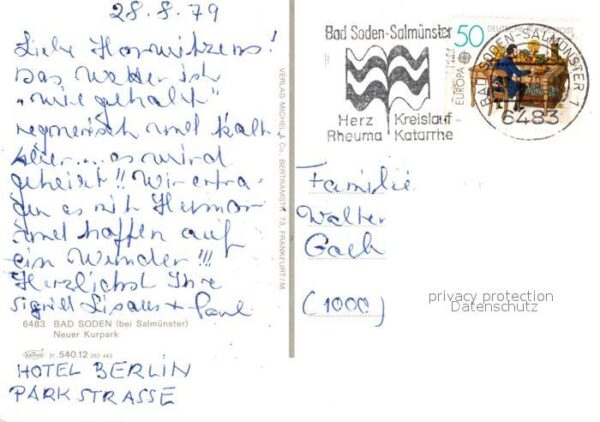 28.8.79
Liebe Horwitzens!
Das Wetter ist
"wie gehabt"
regnerisch und kalt
aber.... es wird
geheizt!! Wir ertra-
gen es mit Humor
und hoffen auf
ein Wunder!!!
Herzlichst Ihre
Sigrid + Paul
6483 BAD SODEN (bei Salmünster)
Neuer Kurpark
31.540.12 263 443
HOTEL BERLIN
PARKSTRASSE
VERLAG MICHEL & Co. BERTRAMSTR. 73, FRANKFURT/M
Bad Soden-Salmünster
Herz Kreislauf-
Rheuma Katarrhe
50
EUROPA
BAD SODEN-SALMÜNSTER 1
6483
Familie
Walter
(1000)
privacy protection
Datenschutz